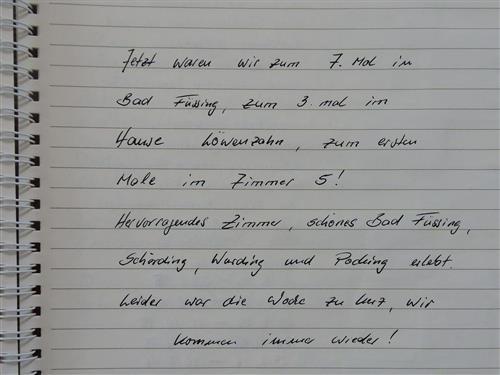 Jetzt waren wir zum 7. Mal in
Bad Füssing, zum 3. mal im
Hause Löwenzahn, zum ersten
Male im Zimmer 5!
Hervorragendes Zimmer, schönes Bad Füssing,
Schärding, und Pocking erlebt.
Leider war die Woche zu kurz, wir
kommen immer wieder!